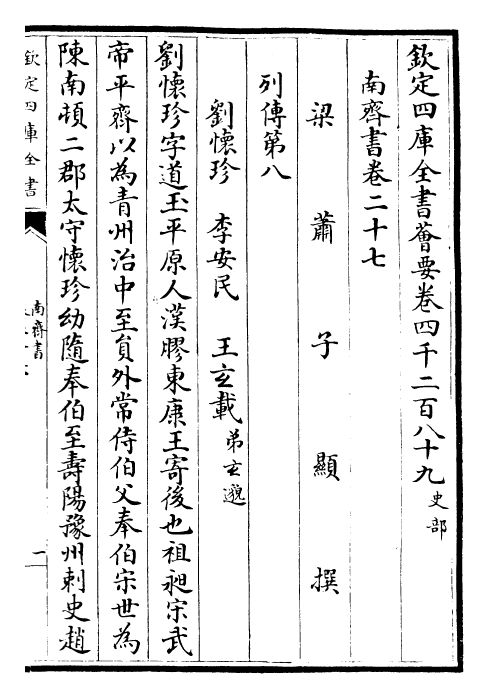 欽定四庫全書薈要卷四千二百八十九史部
南齊書卷二十七
梁蕭子顯撰
列傳第八
劉懷珍 李安民 王玄載弟玄邈
劉懷珍字道玉平原人漢膠東康王寄後也祖昶宋武
帝平齊以為青州治中至負外常侍伯父奉伯宋世為
陳南頓二郡太守懷珍幼隨奉伯至壽陽豫州刺史趙
欽定四庫全書
南齊書
一